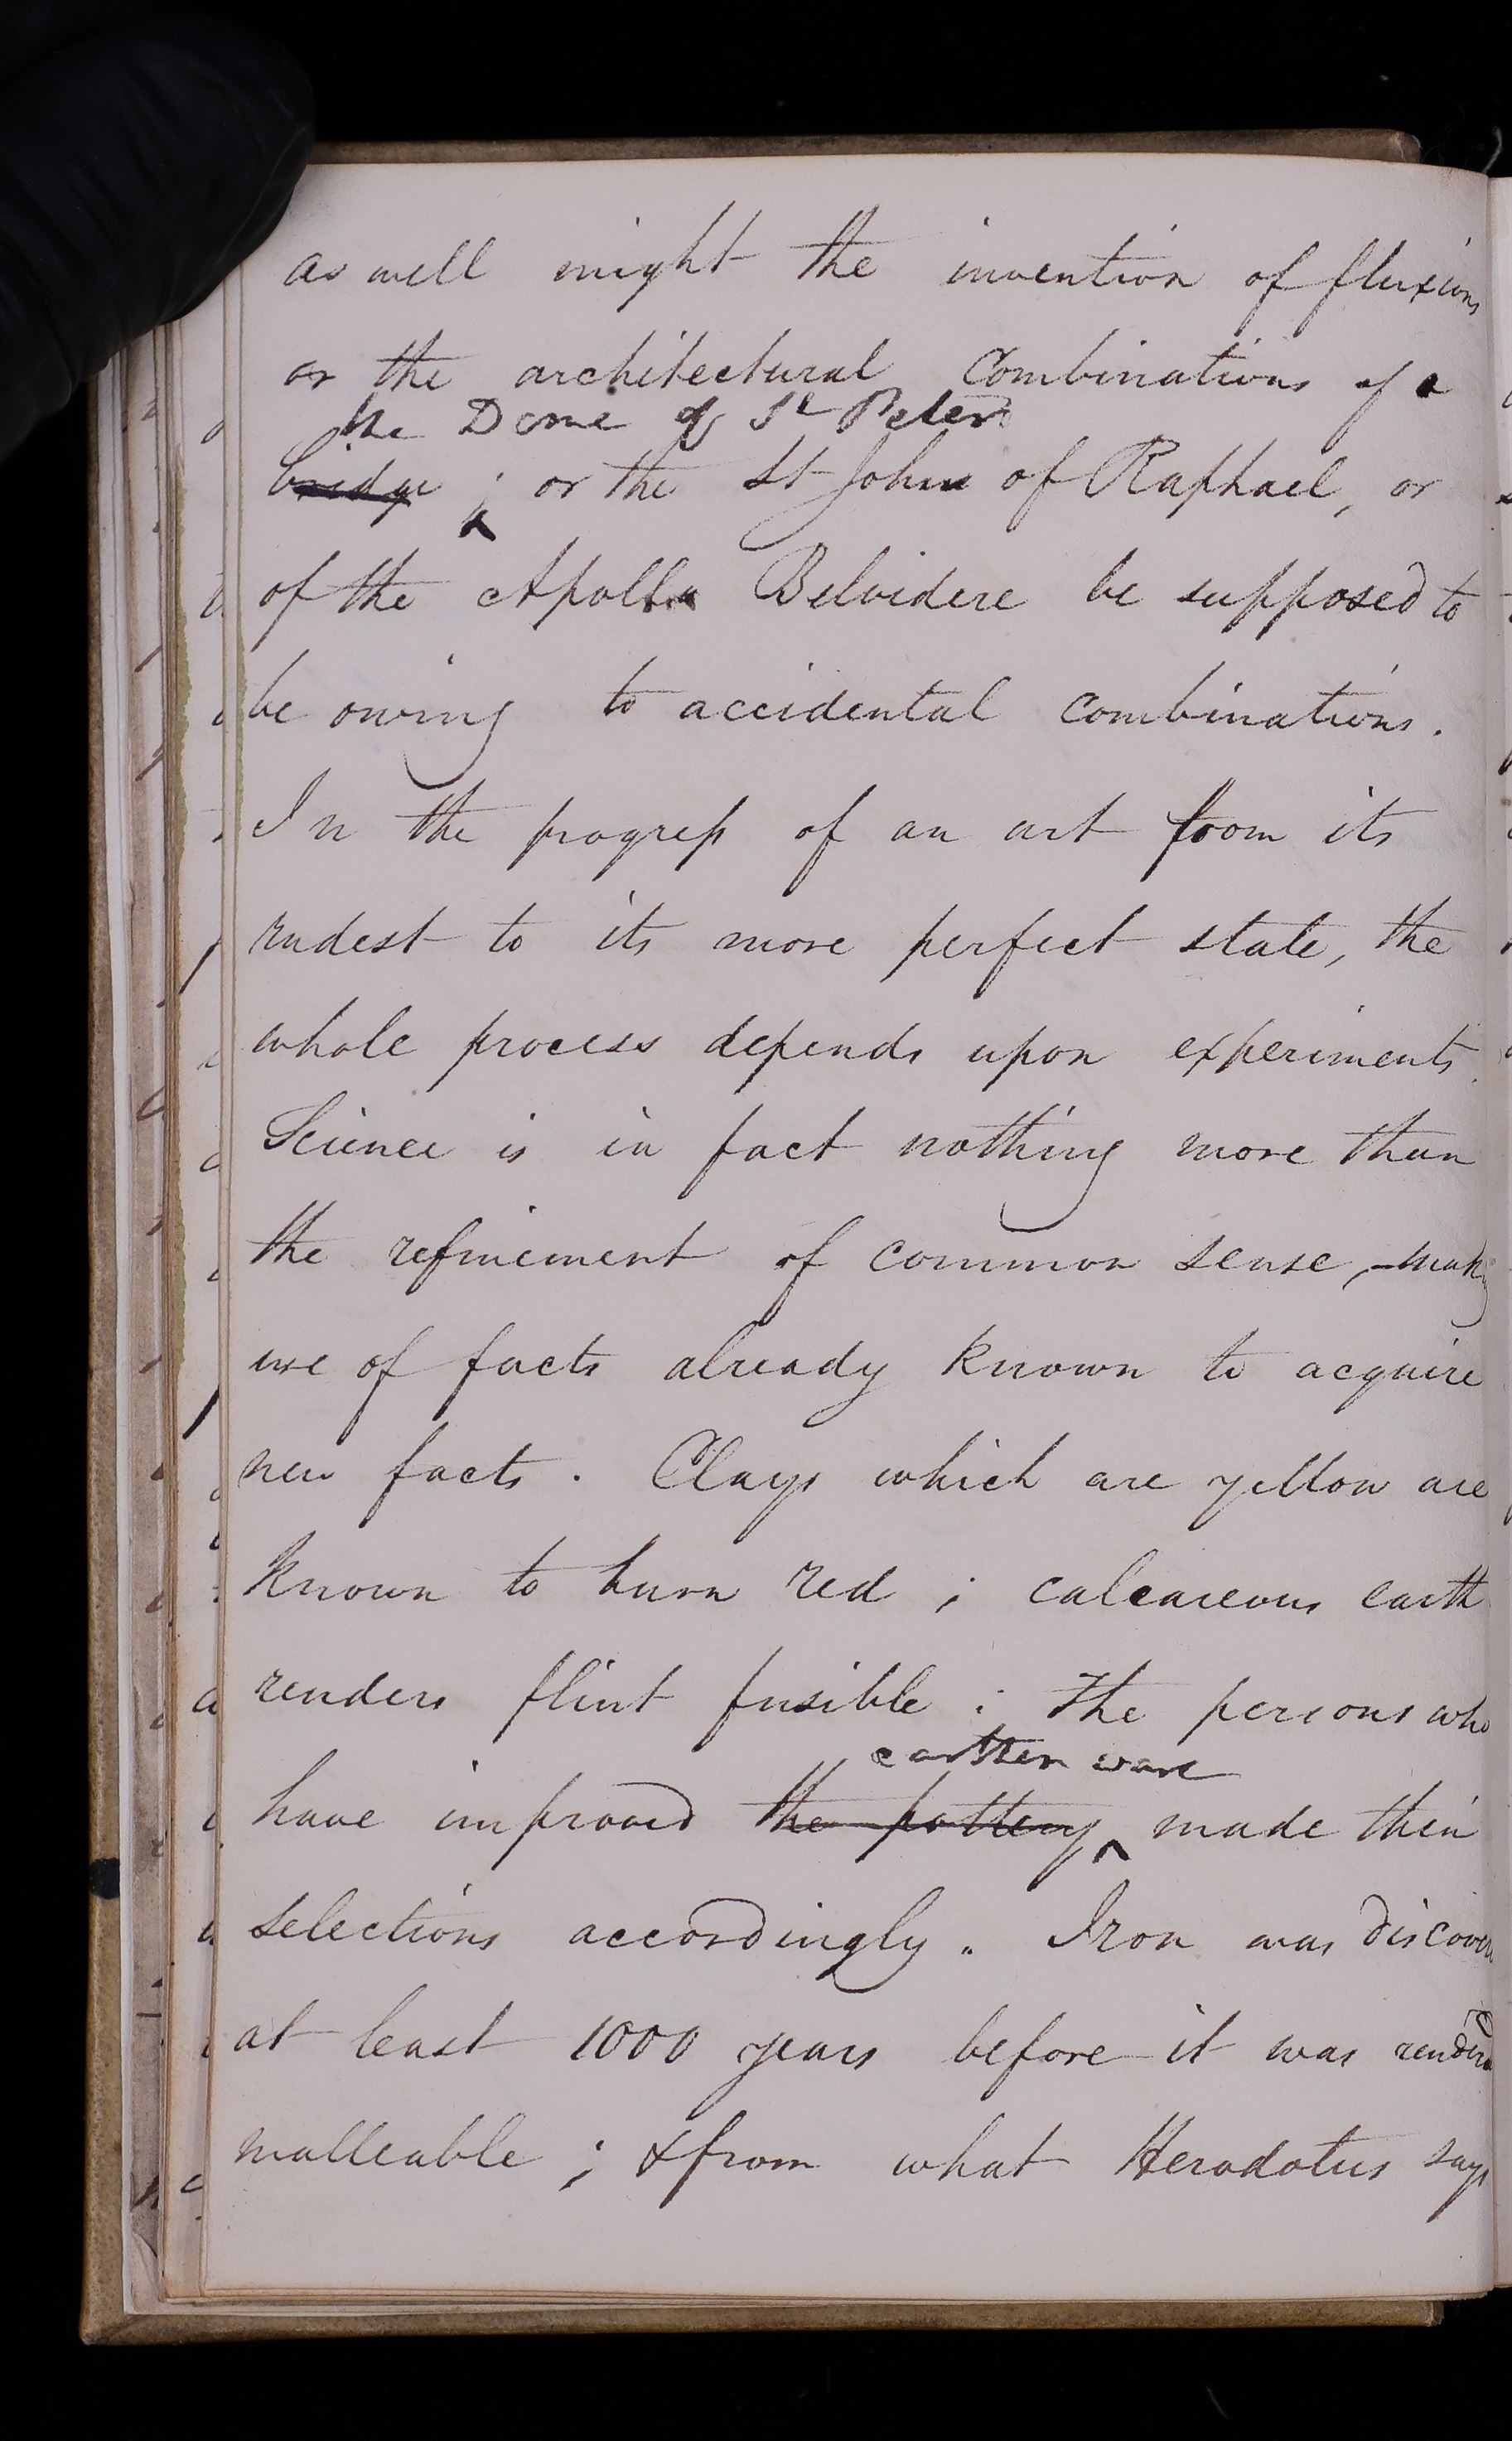 as well might the invention of fluxions
or the architectural Combinations of a
the Dome of St Peters
bridge ; or the St John of Raphael, or
of the Apollo Belvidere be supposed to
be owing to accidental combinations.
In the progress of an art from its
rudest to its more perfect state, the
whole process depends upon experiments.
Science is in fact nothing more than
the refinement of common sense, – making
use of facts already known to acquire
new facts. Clays which are yellow are
known to burn red ; calcareous earth
renders flint fusible ; the persons who
earthen ware
have improved the pottery made their
selections accordingly. Iron was discovered
at least 1000 years before it was rendered
malleable ; & from what Herodotus says